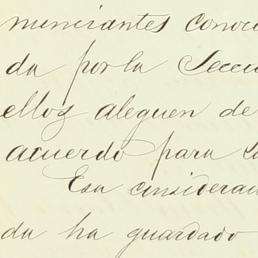 nunciantes conoci
da por la Secci
ellos aleguen de
acuerdo para
Esa considerac
da ha guardado